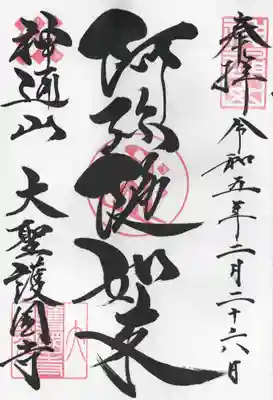 奉拝
令和五年二月二十六日
阿弥陀如来
神通山
大聖護國寺